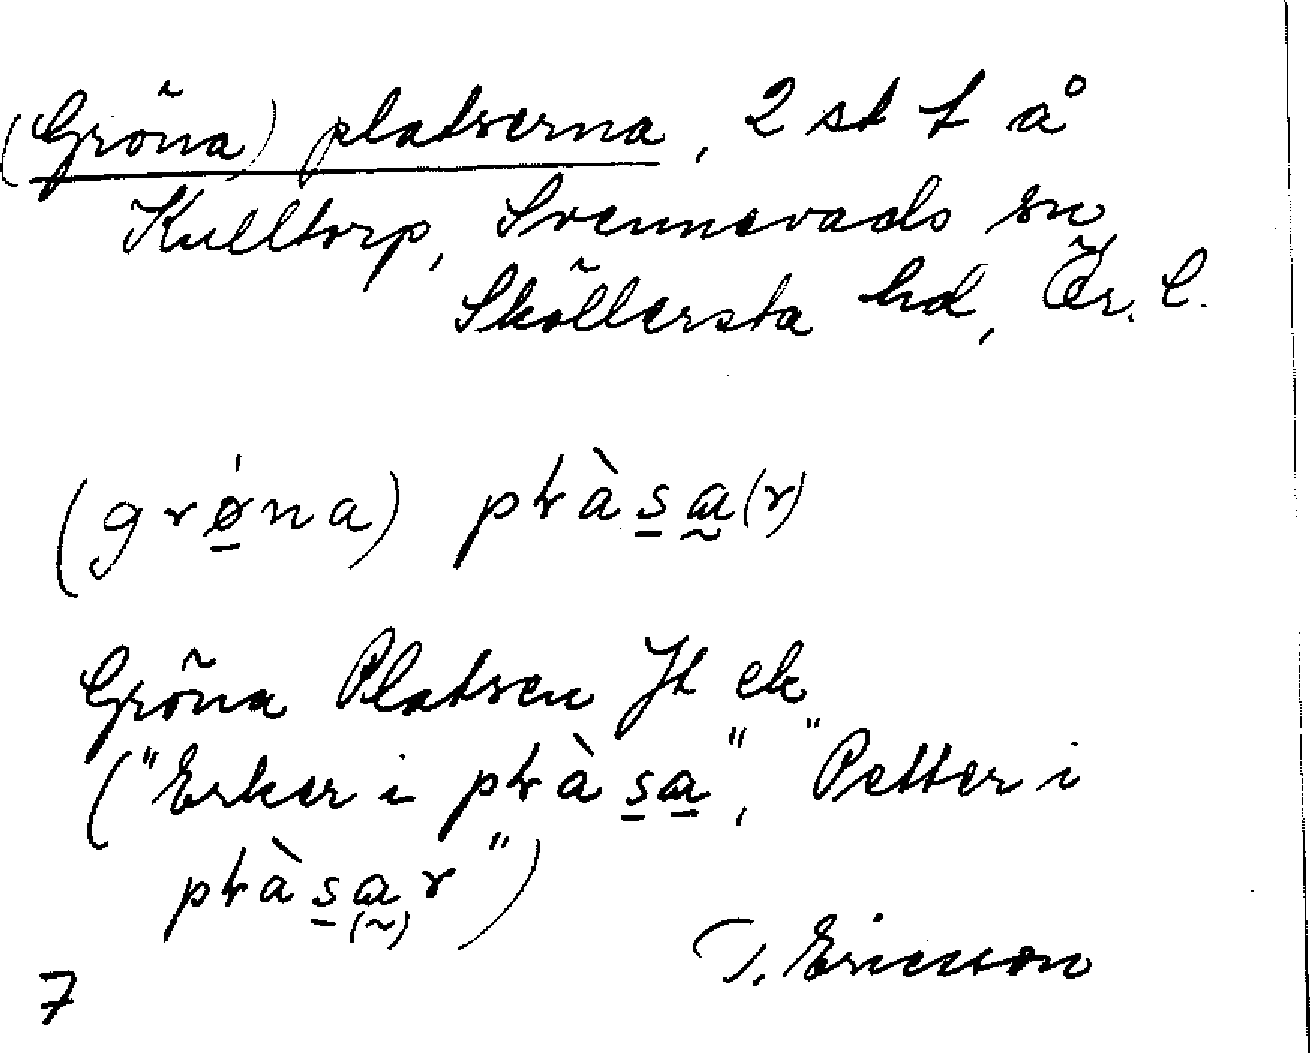 (Gröna) platserna, 2 st t å
Kulltorp, Svennevads sn
Sköllersta hd, Ör. l.
(grǿna) pƚàsa(r)
Gröna Platsen Jt ek
("Erker i pƚàsa", "Petter i
pƚàsar")
T. Ericsson
7